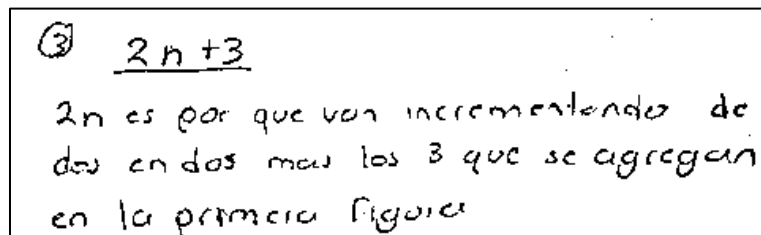 ③ 2n+3
2n es por que van incrementando de
dos en dos mas los 3 que se agregan
en la primera figura